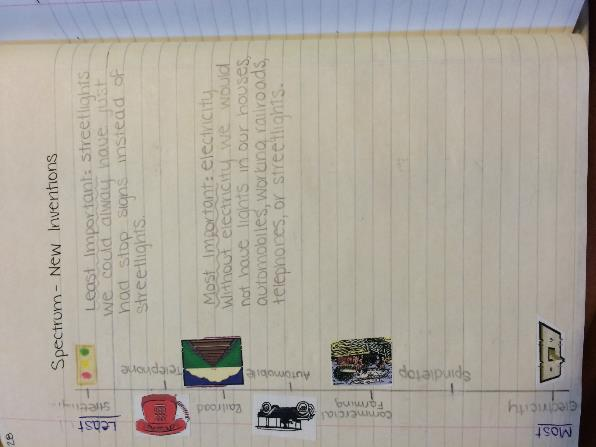 28
Spectrum - New Inventions
Least Important: streetlights
we could alway have just
had stop signs instead of
streetlights.
Most Important: electricity
Without electricity we would
not have lights in our houses,
automobiles, working railroads,
telephones, or streetlights.
Least
Telephone
Railroad
Automobile
Commercial
Farming
Spindletop
Electricity
Most